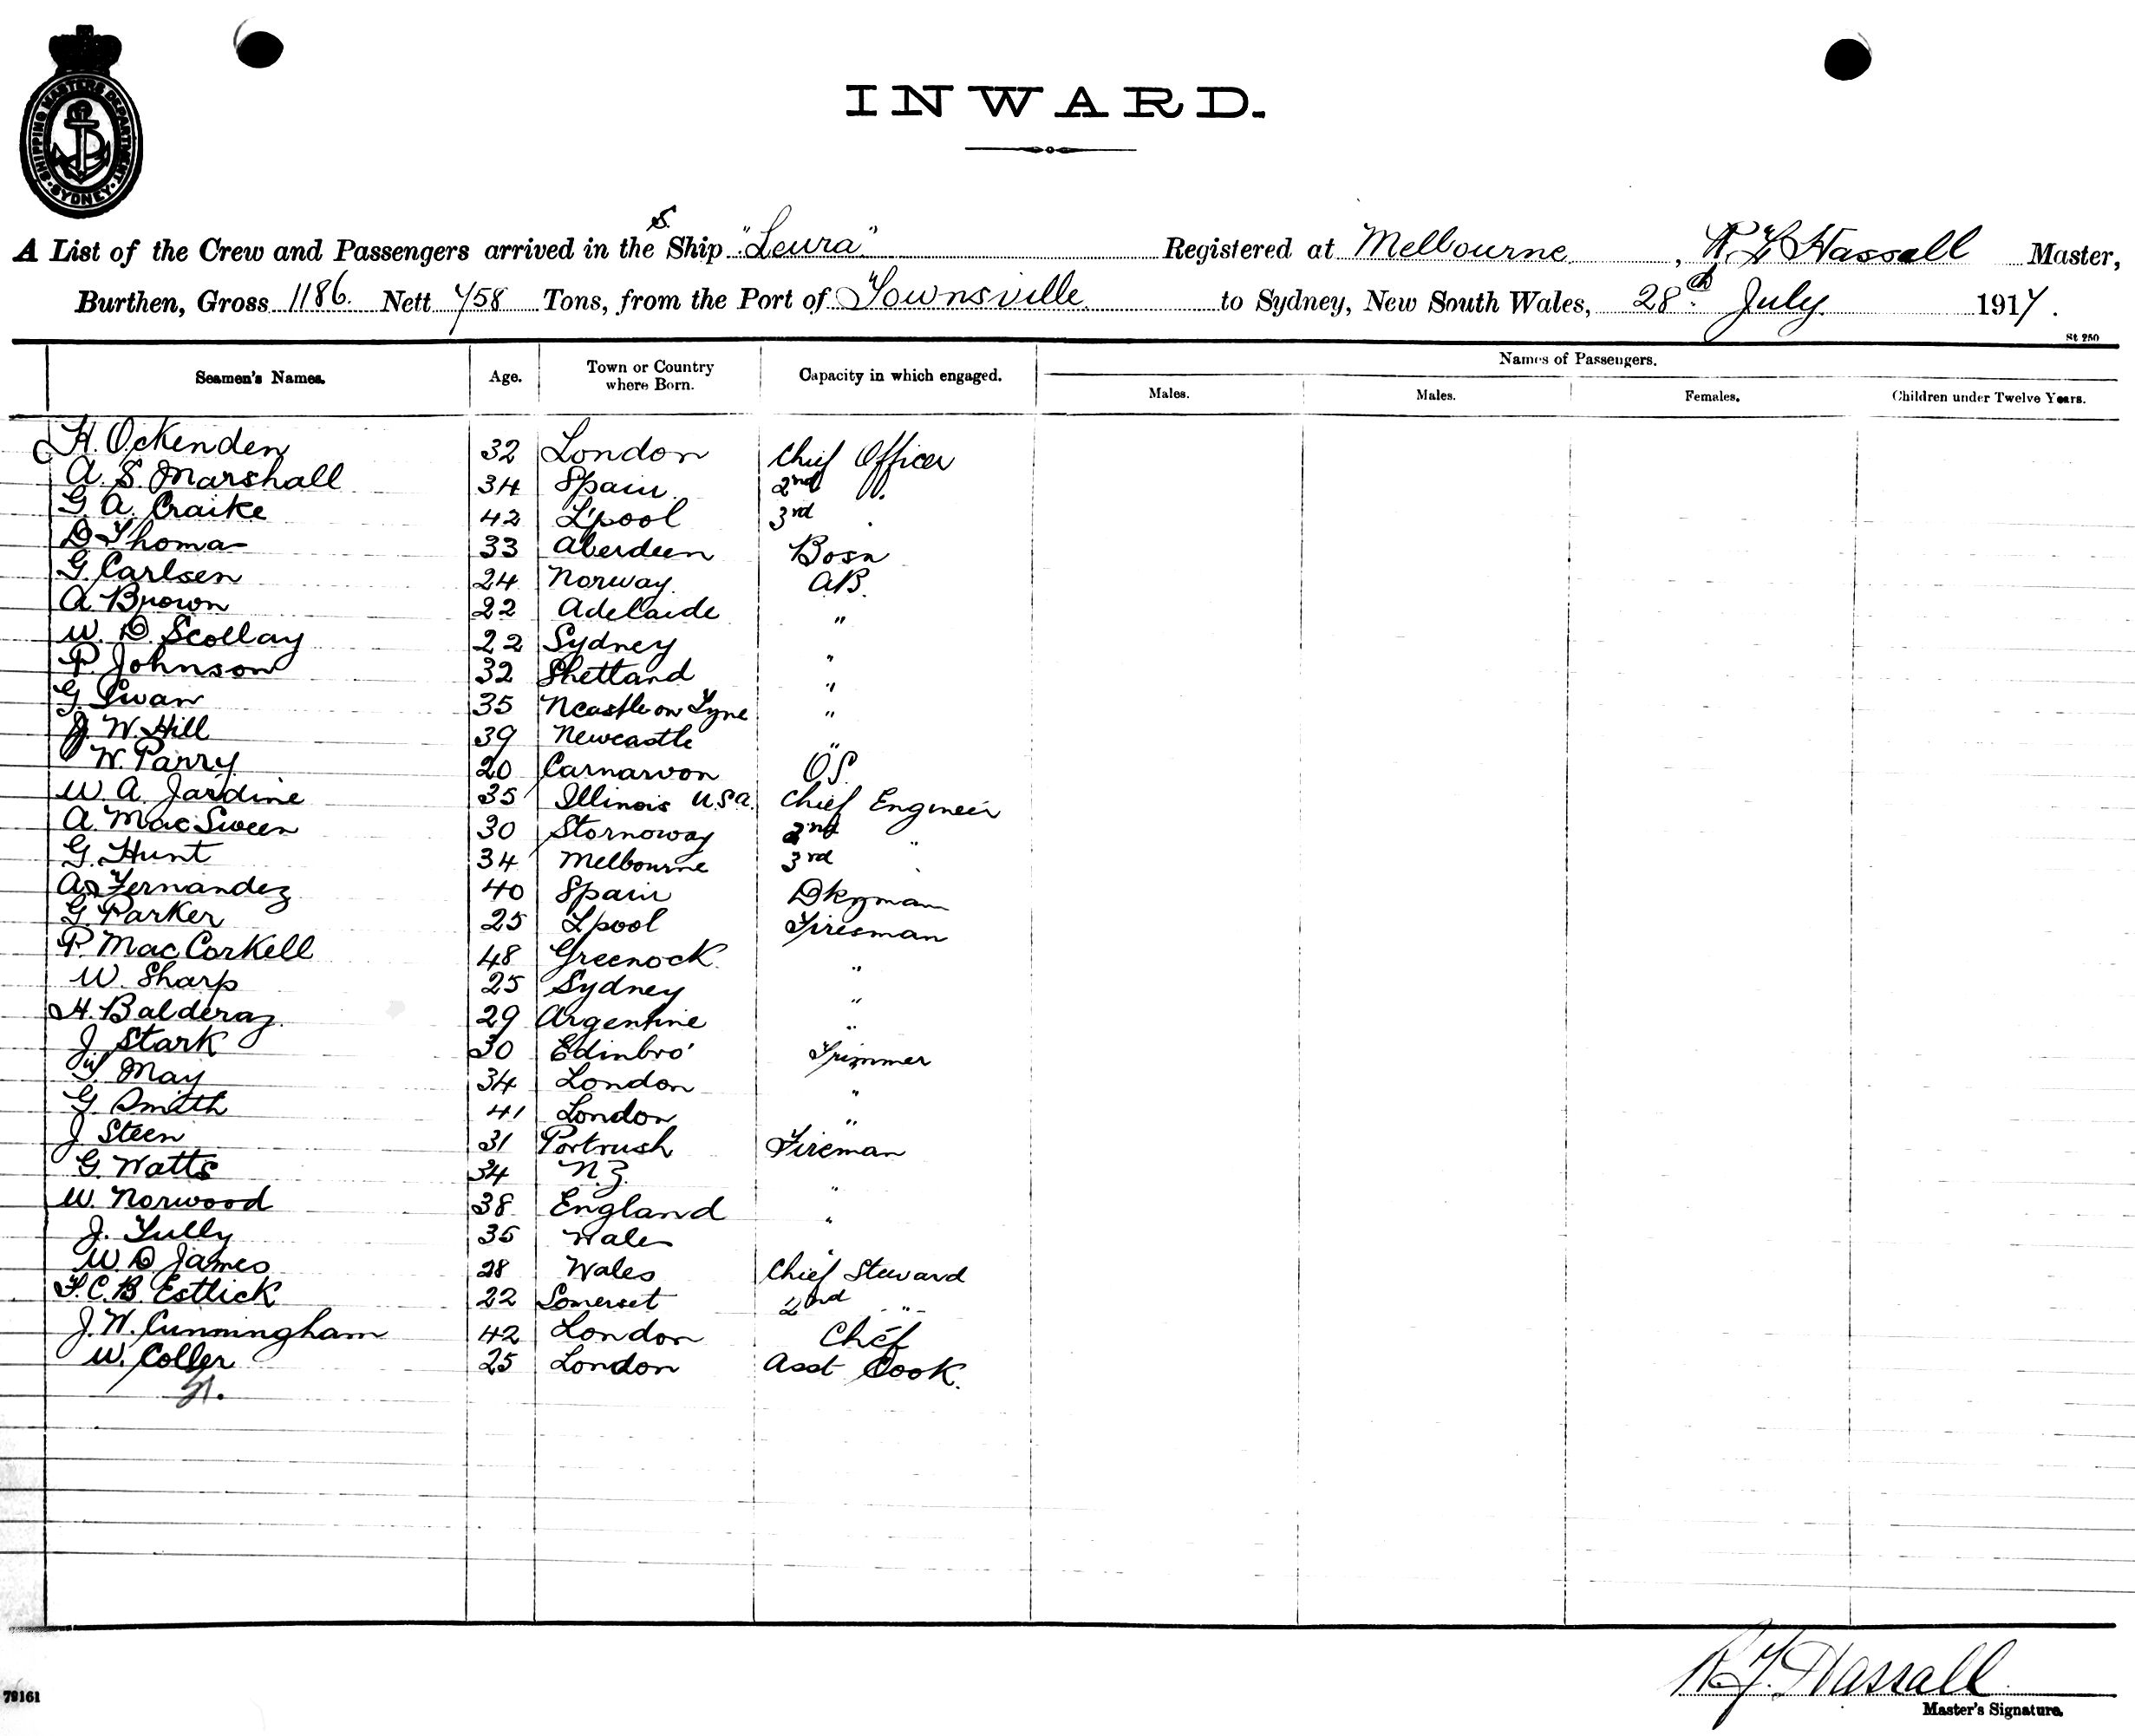 SHIPPING MASTERS DEPARTMENT
SYDNEY
INWARD.
A List of the Crew and Passengers arrived in the S. Ship "Leura" Registered at Melbourne, Hassall Master,
Burthen, Gross 1186. Nett 758 Tons, from the Port of Townsville to Sydney, New South Wales, 28th July 1917.
St 250
Seamen's Names. Age. Town or Country where Born. Capacity in which engaged. Names of Passengers.
Males. Males. Females. Children under Twelve Years.
H. Ockenden 32 London Chief Officer
A. S. Marshall 34 Spain 2nd "
G. A. Craike 42 L'pool 3rd "
D Thomas 33 Aberdeen Bosn
G. Carlsen 24 Norway AB.
A Brown 22 Adelaide "
W. D. Scollay 22 Sydney "
P. Johnson 32 Shetland "
G. Swan 35 Ncastle on Tyne "
J. W Hill 39 Newcastle "
W. Parry 20 Carnarvon OS.
W. A. Jardine 35 Illinois U.S.A. Chief Engineer
A. MacSween 30 Stornoway 2nd "
G. Hunt 34 Melbourne 3rd "
Fernandez 40 Spain Dkyman
G. Parker 25 Lpool Firesman
P. MacCorkell 48 Greenock "
W. Sharp 25 Sydney "
H. Balderaz 29 Argentine "
J Stark 30 Edinbro' Trimmer
May 34 London "
G. Smith 41 London "
J Steen 31 Portrush Fireman
G. Watts 34 N.Z. "
W. Norwood 38 England "
J. Tully 35 Wales
W. D James 28 Wales Chief Steward
F. C. B. Estlick 22 Somerset 2nd "
J. W. Cunningham 42 London Chef
W. Coller 25 London Asst Cook.
Hassall
79161
Master's Signature.